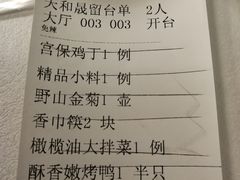 天和晟留台单 2人
大厅 003 003 开台
免辣
宫保鸡丁1 例
精品小料1 例
野山金菊1 壶
香巾筷2 块
橄榄油大拌菜1 例
酥香嫩烤鸭1 半只